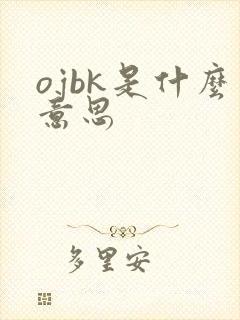 ojbk是什麼
意思
多里安